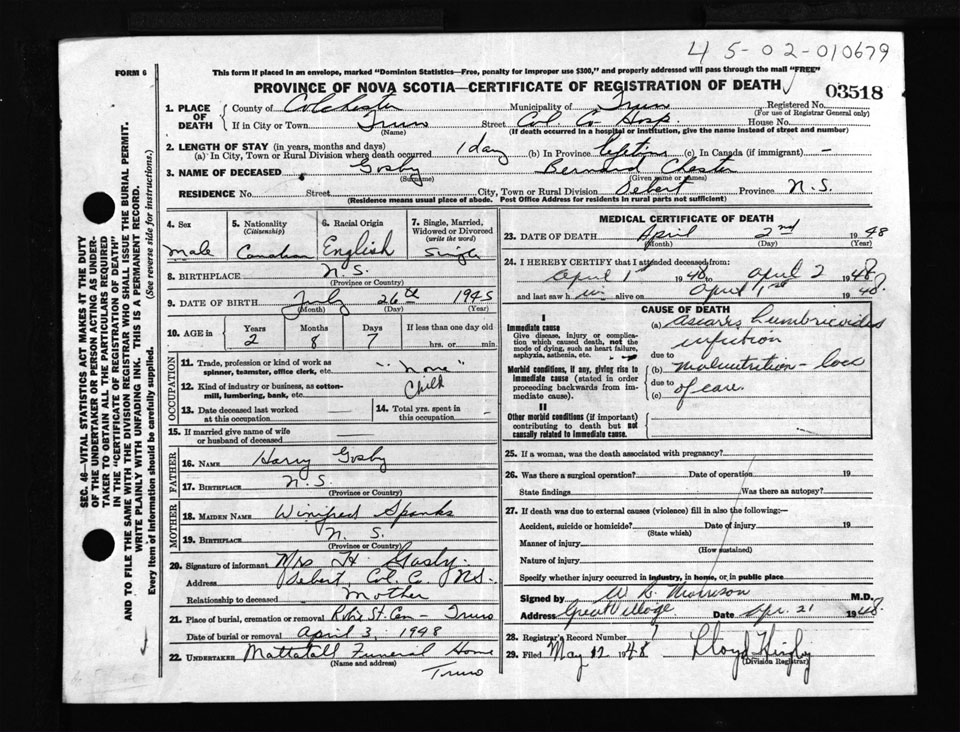 45-02-010679
FORM 6
This form if placed in an envelope, marked "Dominion Statistics—Free, penalty for improper use $300," and properly addressed will pass through the mail "FREE"
PROVINCE OF NOVA SCOTIA—CERTIFICATE OF REGISTRATION OF DEATH
03518
1. PLACE OF DEATH
County of Colchester Municipality of Truro Registered No.
(For use of Registrar General only)
If in City or Town Truro Street Col. Co Hosp. House No.
(Name) (If death occurred in a hospital or institution, give the name instead of street and number)
2. LENGTH OF STAY (in years, months and days)
(a) In City, Town or Rural Division where death occurred 1 day (b) In Province lifetime (c) In Canada (if immigrant) -
3. NAME OF DECEASED Gosby Bernard Chester
(Surname) (Given names)
RESIDENCE No. Street City, Town or Rural Division Debert Province N.S.
(Residence means usual place of abode. Post Office Address for residents in rural parts not sufficient)
4. Sex
male
5. Nationality
(Citizenship)
Canadian
6. Racial Origin
English
7. Single, Married, Widowed or Divorced
(write the word)
Single
8. BIRTHPLACE N.S.
(Province or Country)
9. DATE OF BIRTH July 26th 1945
(Month) (Day) (Year)
10. AGE in Years Months Days If less than one day old
2 8 7 hrs. or min.
OCCUPATION
11. Trade, profession or kind of work as spinner, teamster, office clerk, etc. "none"
12. Kind of industry or business, as cotton-mill, lumbering, bank, etc. Child
13. Date deceased last worked at this occupation —
14. Total yrs. spent in this occupation -
15. If married give name of wife or husband of deceased —
FATHER
16. NAME Harry Gosby
17. BIRTHPLACE N.S.
(Province or Country)
MOTHER
18. MAIDEN NAME Winifred Sparks
19. BIRTHPLACE N.S.
(Province or Country)
20. Signature of informant Mrs H. Gosby.
Address Debert, Col. C. N.S.
Relationship to deceased Mother
21. Place of burial, cremation or removal Robie St. Cem - Truro
Date of burial or removal April 3, 1948
22. UNDERTAKER Mattatall Funeral Home
(Name and address)
Truro
MEDICAL CERTIFICATE OF DEATH
23. DATE OF DEATH April 2nd 1948
(Month) (Day) (Year)
24. I HEREBY CERTIFY that I attended deceased from:
April 1st 1948 to April 2 1948
and last saw him alive on April 1st 1948.
CAUSE OF DEATH
I
Immediate cause
Give disease, injury or complication which caused death, not the mode of dying, such as heart failure, asphyxia, asthenia, etc.
(a) Ascaris Lumbricoides
infection
due to
Morbid conditions, if any, giving rise to immediate cause (stated in order proceeding backwards from immediate cause).
(b) Malnutrition - lack
due to of care.
(c)
II
Other morbid conditions (if important) contributing to death but not causally related to immediate cause.
25. If a woman, was the death associated with pregnancy?
26. Was there a surgical operation? Date of operation 19
State findings Was there an autopsy?
27. If death was due to external causes (violence) fill in also the following:—
Accident, suicide or homicide? Date of injury 19
(State which)
Manner of injury
(How sustained)
Nature of injury
Specify whether injury occurred in industry, in home, or in public place
Signed by W R. Morrison M.D.
Address Great Village Date Apr. 21 1948.
28. Registrar's Record Number
29. Filed May 12 1948 Lloyd
(Division Registrar)
SEC. 46—VITAL STATISTICS ACT MAKES IT THE DUTY
OF THE UNDERTAKER OR PERSON ACTING AS UNDER-
TAKER TO OBTAIN ALL THE PARTICULARS REQUIRED
IN THE "CERTIFICATE OF REGISTRATION OF DEATH"
AND TO FILE THE SAME WITH THE DIVISION REGISTRAR WHO SHALL ISSUE THE BURIAL PERMIT.
WRITE PLAINLY WITH UNFADING INK. THIS IS A PERMANENT RECORD.
Every item of information should be carefully supplied. (See reverse side for instructions.)